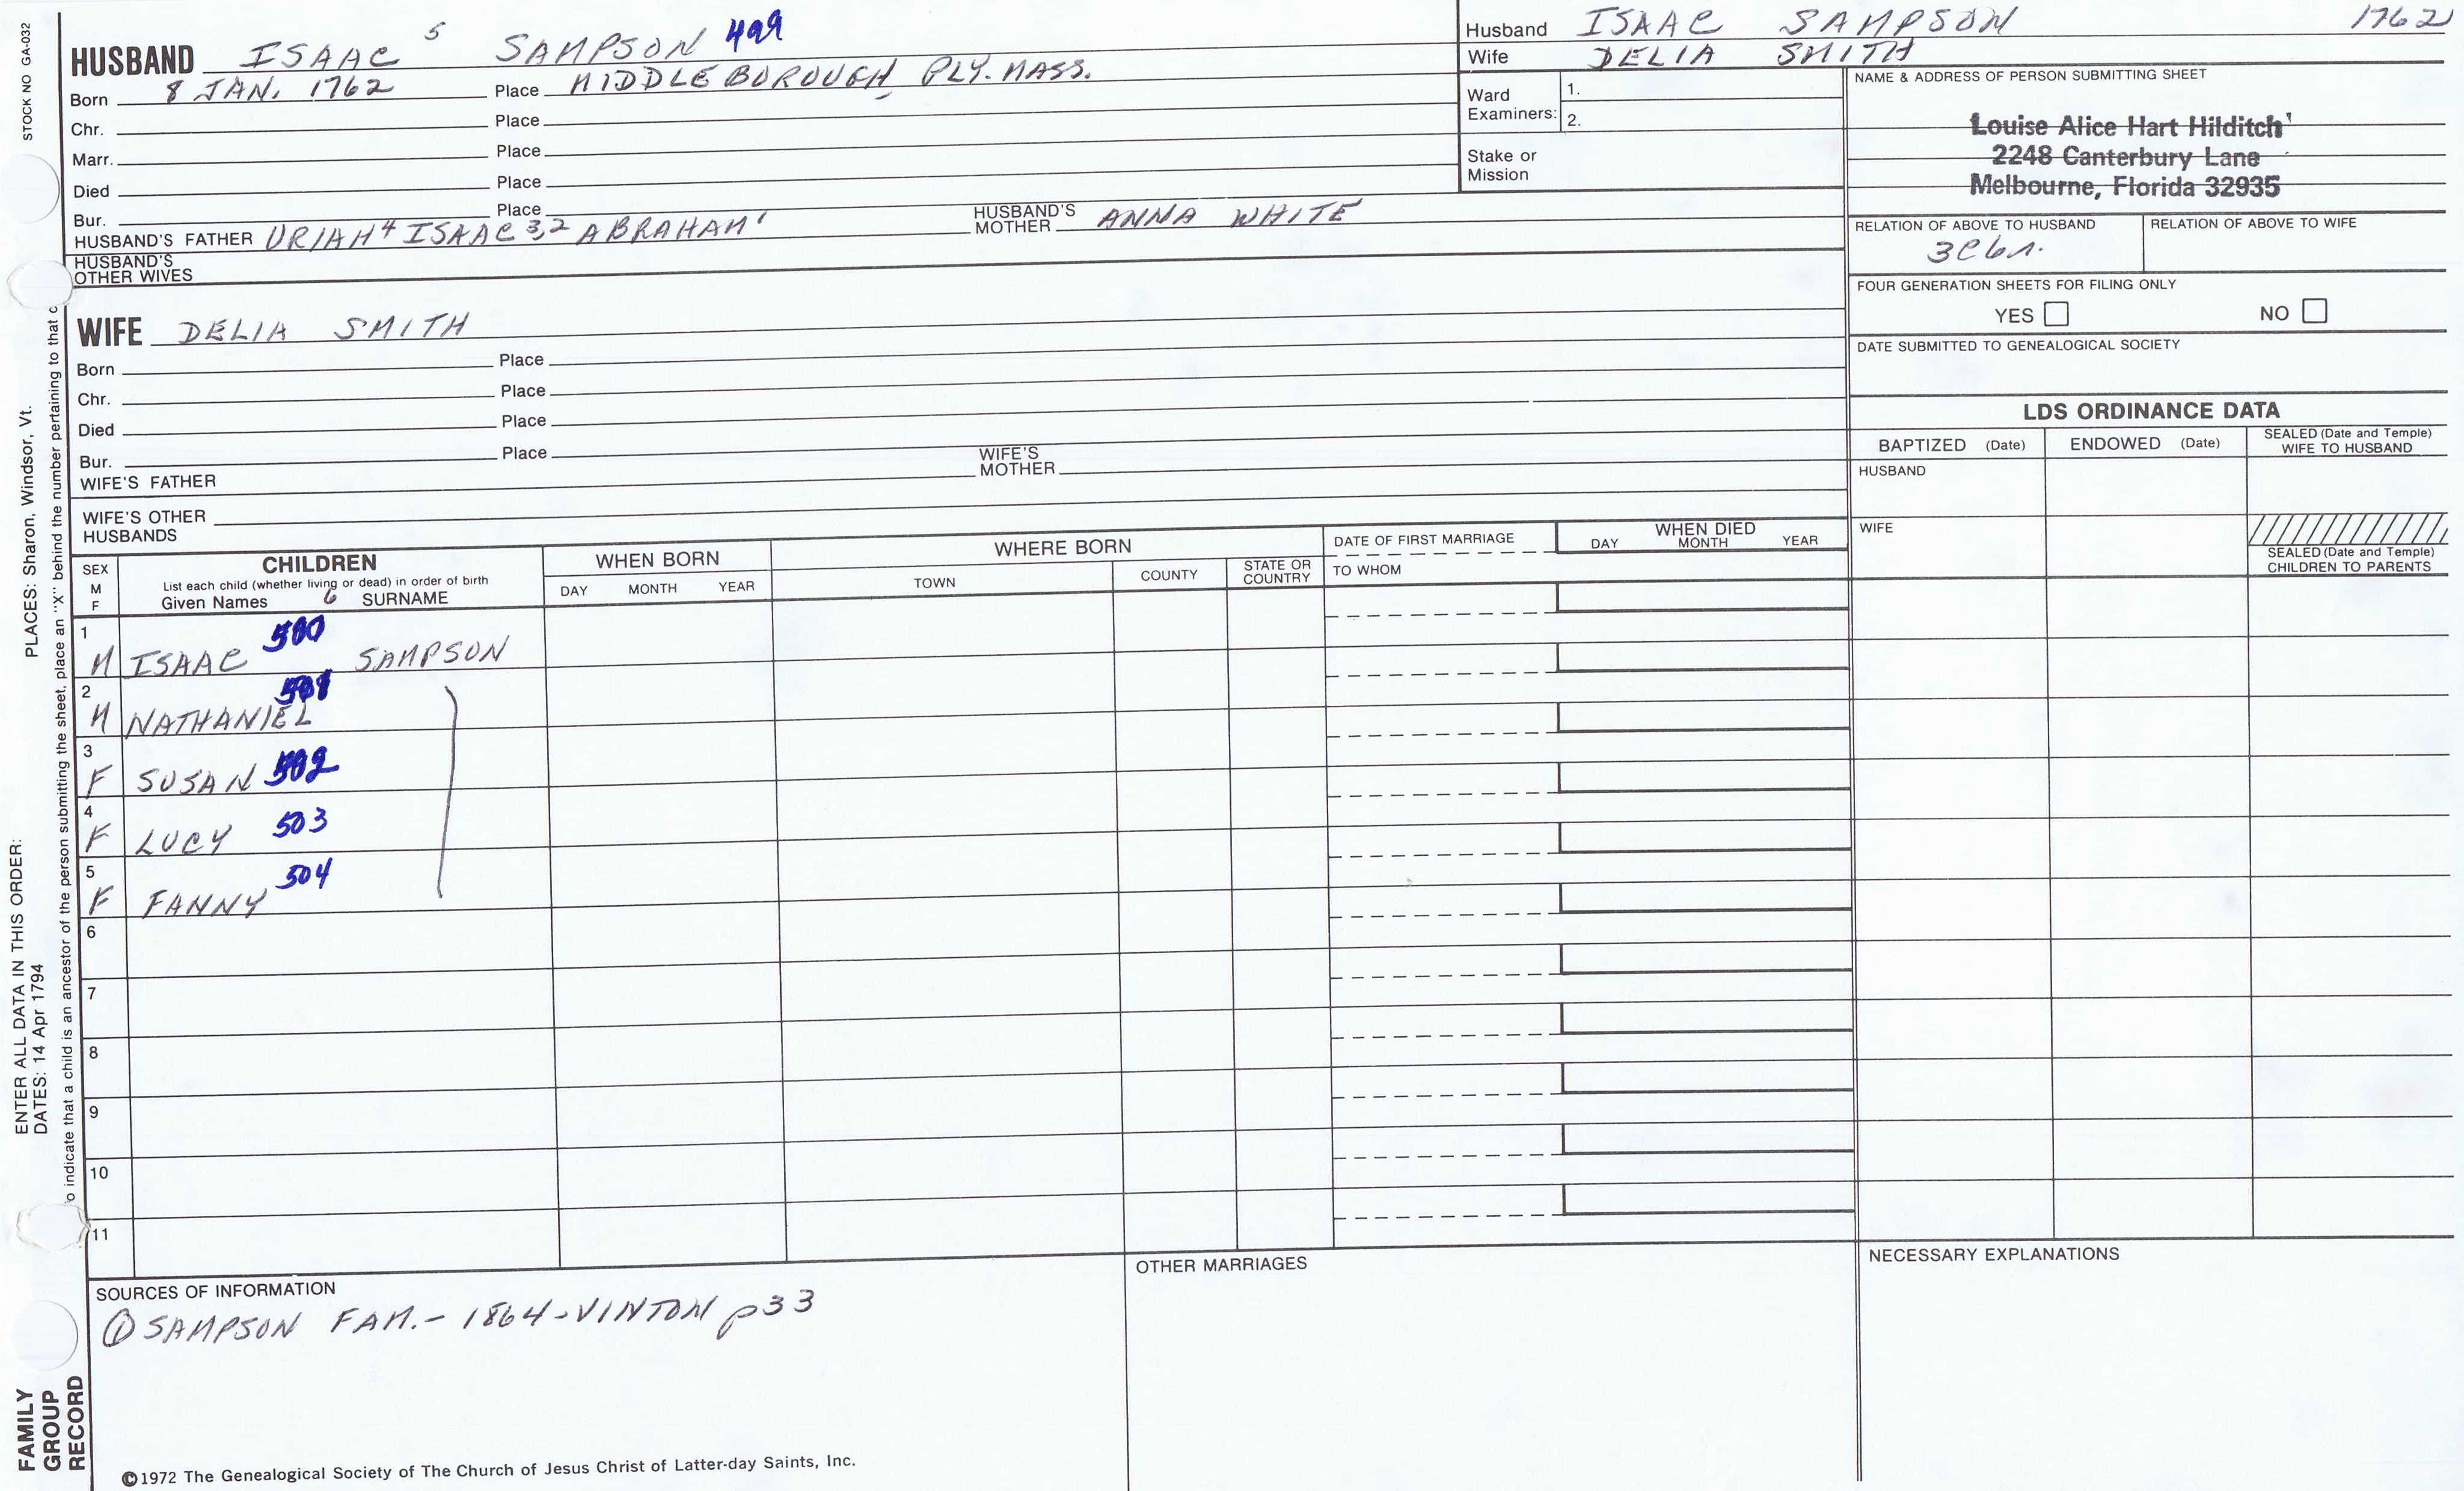 STOCK NO GA-032
HUSBAND ISAAC 5 SAMPSON 499
Born 8 JAN. 1762 Place MIDDLEBOROUGH, PLY. MASS.
Chr. Place
Marr. Place
Died Place
Bur. Place
HUSBAND'S FATHER URIAH 4 ISAAC 3,2 ABRAHAM 1 HUSBAND'S MOTHER ANNA WHITE
HUSBAND'S
OTHER WIVES
Husband ISAAC SAMPSON 1762
Wife DELIA SMITH
Ward
Examiners: 1.
2.
Stake or
Mission
NAME & ADDRESS OF PERSON SUBMITTING SHEET
Louise Alice Hart Hilditch
2248 Canterbury Lane
Melbourne, Florida 32935
RELATION OF ABOVE TO HUSBAND
RELATION OF ABOVE TO WIFE
FOUR GENERATION SHEETS FOR FILING ONLY
YES NO
DATE SUBMITTED TO GENEALOGICAL SOCIETY
WIFE DELIA SMITH
Born Place
Chr. Place
Died Place
Bur. Place
WIFE'S FATHER WIFE'S MOTHER
WIFE'S OTHER
HUSBANDS
LDS ORDINANCE DATA
BAPTIZED (Date) ENDOWED (Date) SEALED (Date and Temple) WIFE TO HUSBAND
HUSBAND
WIFE
SEALED (Date and Temple)
CHILDREN TO PARENTS
SEX
M
F
CHILDREN
List each child (whether living or dead) in order of birth
Given Names 6 SURNAME
WHEN BORN
DAY MONTH YEAR
WHERE BORN
TOWN COUNTY STATE OR COUNTRY
DATE OF FIRST MARRIAGE
TO WHOM
WHEN DIED
DAY MONTH YEAR
1 M ISAAC 500 SAMPSON
2 M NATHANIEL 501
3 F SUSAN 502
4 F LUCY 503
5 F FANNY 504
6
7
8
9
10
11
SOURCES OF INFORMATION
① SAMPSON FAM. - 1864 - VINTON p33
OTHER MARRIAGES
NECESSARY EXPLANATIONS
©1972 The Genealogical Society of The Church of Jesus Christ of Latter-day Saints, Inc.
PLACES: Sharon, Windsor, Vt.
ENTER ALL DATA IN THIS ORDER:
DATES: 14 Apr 1794
o indicate that a child is an ancestor of the person submitting the sheet, place an "X" behind the number pertaining to that c
FAMILY
GROUP
RECORD